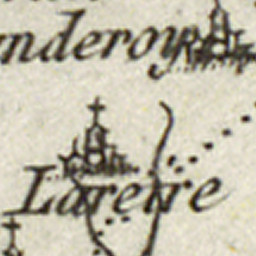 nderoy
Laretre